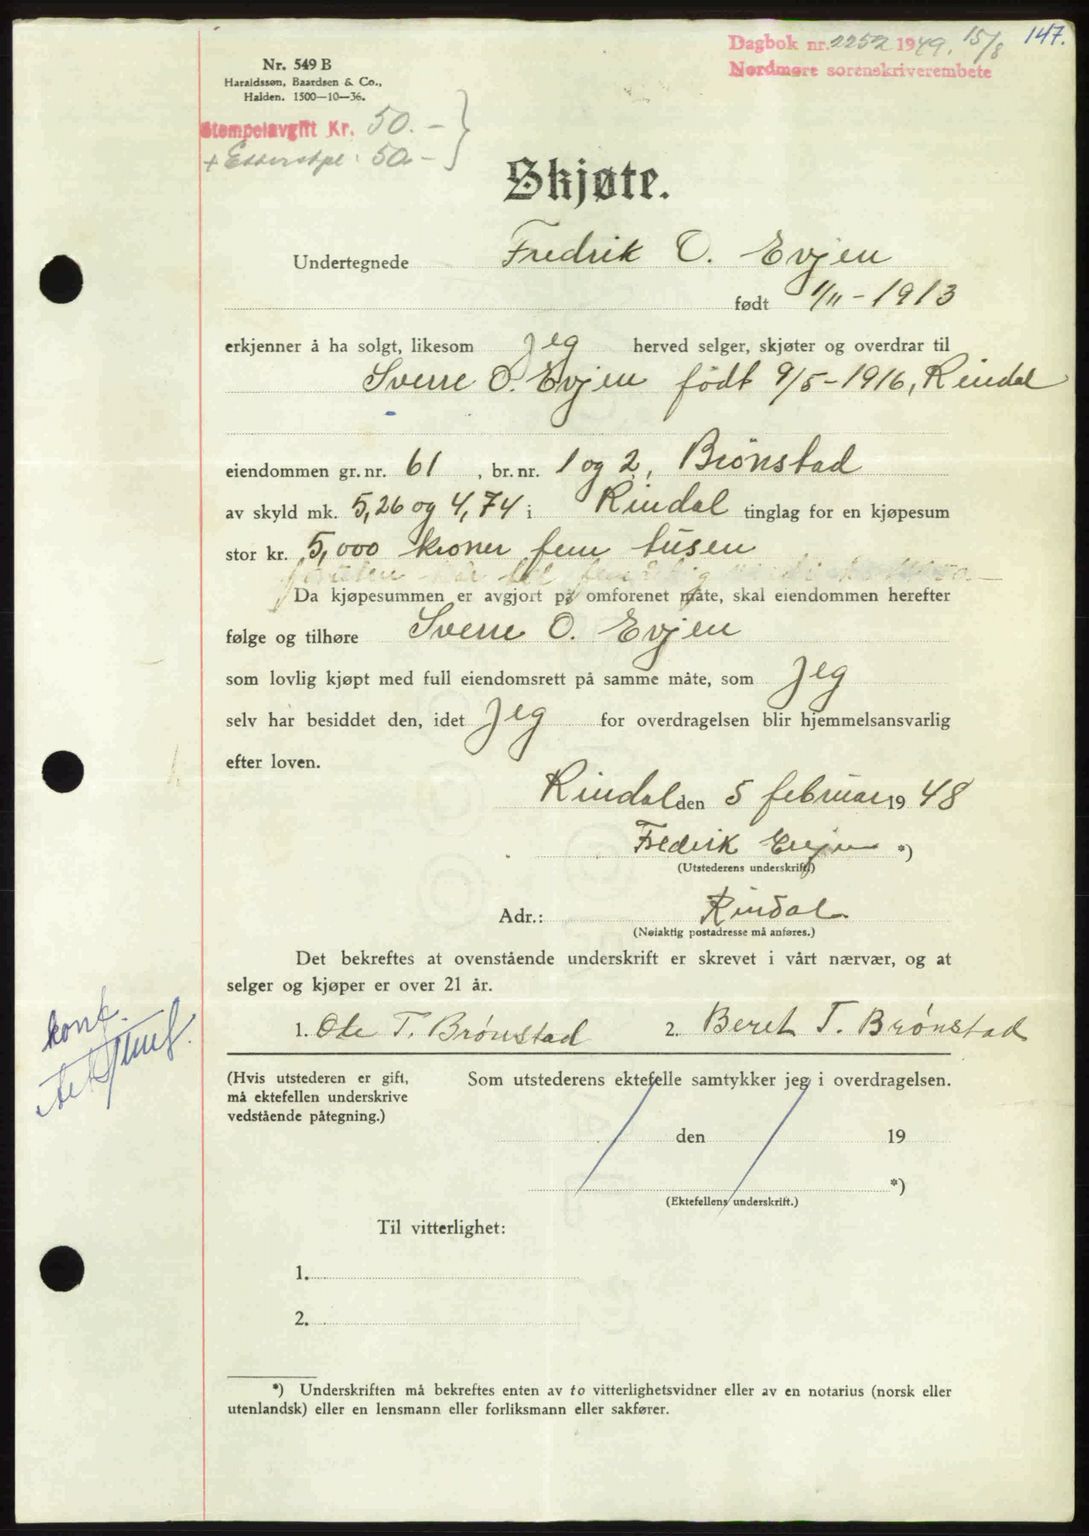 147.
Dagbok nr. 2252 1949. 15/8
Nordmøre sorenskriverembete
Nr. 549 B
Haraldssøn, Baardsen & Co.,
Halden. 1500—10—36.
Stempelavgift Kr. 50.-
+ Etterstpl: 50.-
Skjøte.
Undertegnede Fredrik O. Evjen
født 1/11-1913
erkjenner å ha solgt, likesom jeg herved selger, skjøter og overdrar til
Sverre O. Evjen født 9/5-1916, Rindal
eiendommen gr. nr. 61, br. nr. 1 og 2, Brønstad
av skyld mk. 5,26 og 4,74 i Rindal tinglag for en kjøpesum
stor kr. 5,000 kroner fem tusen
Da kjøpesummen er avgjort på omforenet måte, skal eiendommen herefter
følge og tilhøre Sverre O. Evjen
som lovlig kjøpt med full eiendomsrett på samme måte, som jeg
selv har besiddet den, idet jeg for overdragelsen blir hjemmelsansvarlig
efter loven.
Rindal den 5 februar 1948
Fredrik Evjen *)
(Utstederens underskrift)
Adr.: Rindal
(Nøiaktig postadresse må anføres.)
Det bekreftes at ovenstående underskrift er skrevet i vårt nærvær, og at
selger og kjøper er over 21 år.
1. Ole T. Brønstad 2. Beret T. Brønstad
konf.
(Hvis utstederen er gift, Som utstederens ektefelle samtykker jeg i overdragelsen.
må ektefellen underskrive
vedstående påtegning.)
den 19
*)
(Ektefellens underskrift.)
Til vitterlighet:
1.
2.
*) Underskriften må bekreftes enten av to vitterlighetsvidner eller av en notarius (norsk eller
utenlandsk) eller en lensmann eller forliksmann eller sakfører.